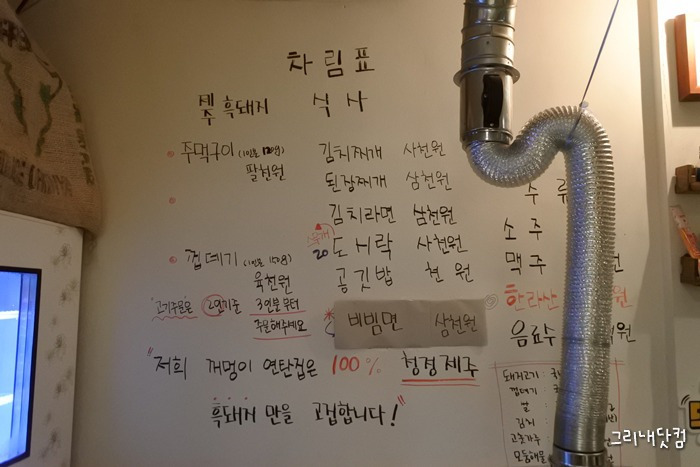 차림표
제주 흑돼지
주먹구이 (1인분 120g)
팔천원
껍데기 (1인분 150g)
육천원
고기주문은 2인기준 3인분부터
주문해주세요
식사
김치찌개 사천원
된장찌개 삼천원
김치라면 삼천원
추억의 20
도시락 사천원
공깃밥 천원
비빔면 삼천원
주류
소주
맥주 원
한라산 원
음료수 원
"저희 꺼멍이 연탄집은 100% 청정제주
흑돼지만을 고집합니다!"
돼지고기 : 국
껍데기 : 국
쌀
김치
고춧가루
모듬해물
그리내닷컴